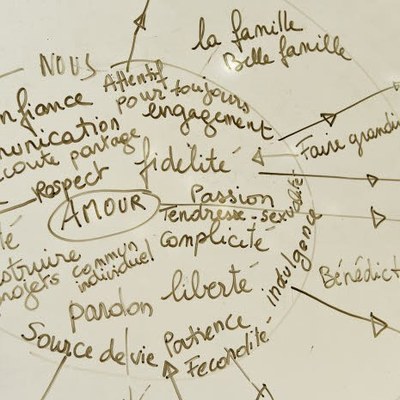 la famille
Belle famille
NOUS
Attentif
pour toujours
engagement
nfiance
munication
coute partage
fidélité
Faire grandi
Respect
AMOUR
Passion
Tendresse - sexualité
Complicité
té
struire
projets commun
individuel
Indulgence
Bénédict
pardon
liberté
Source de vie
Patience
Fécondité